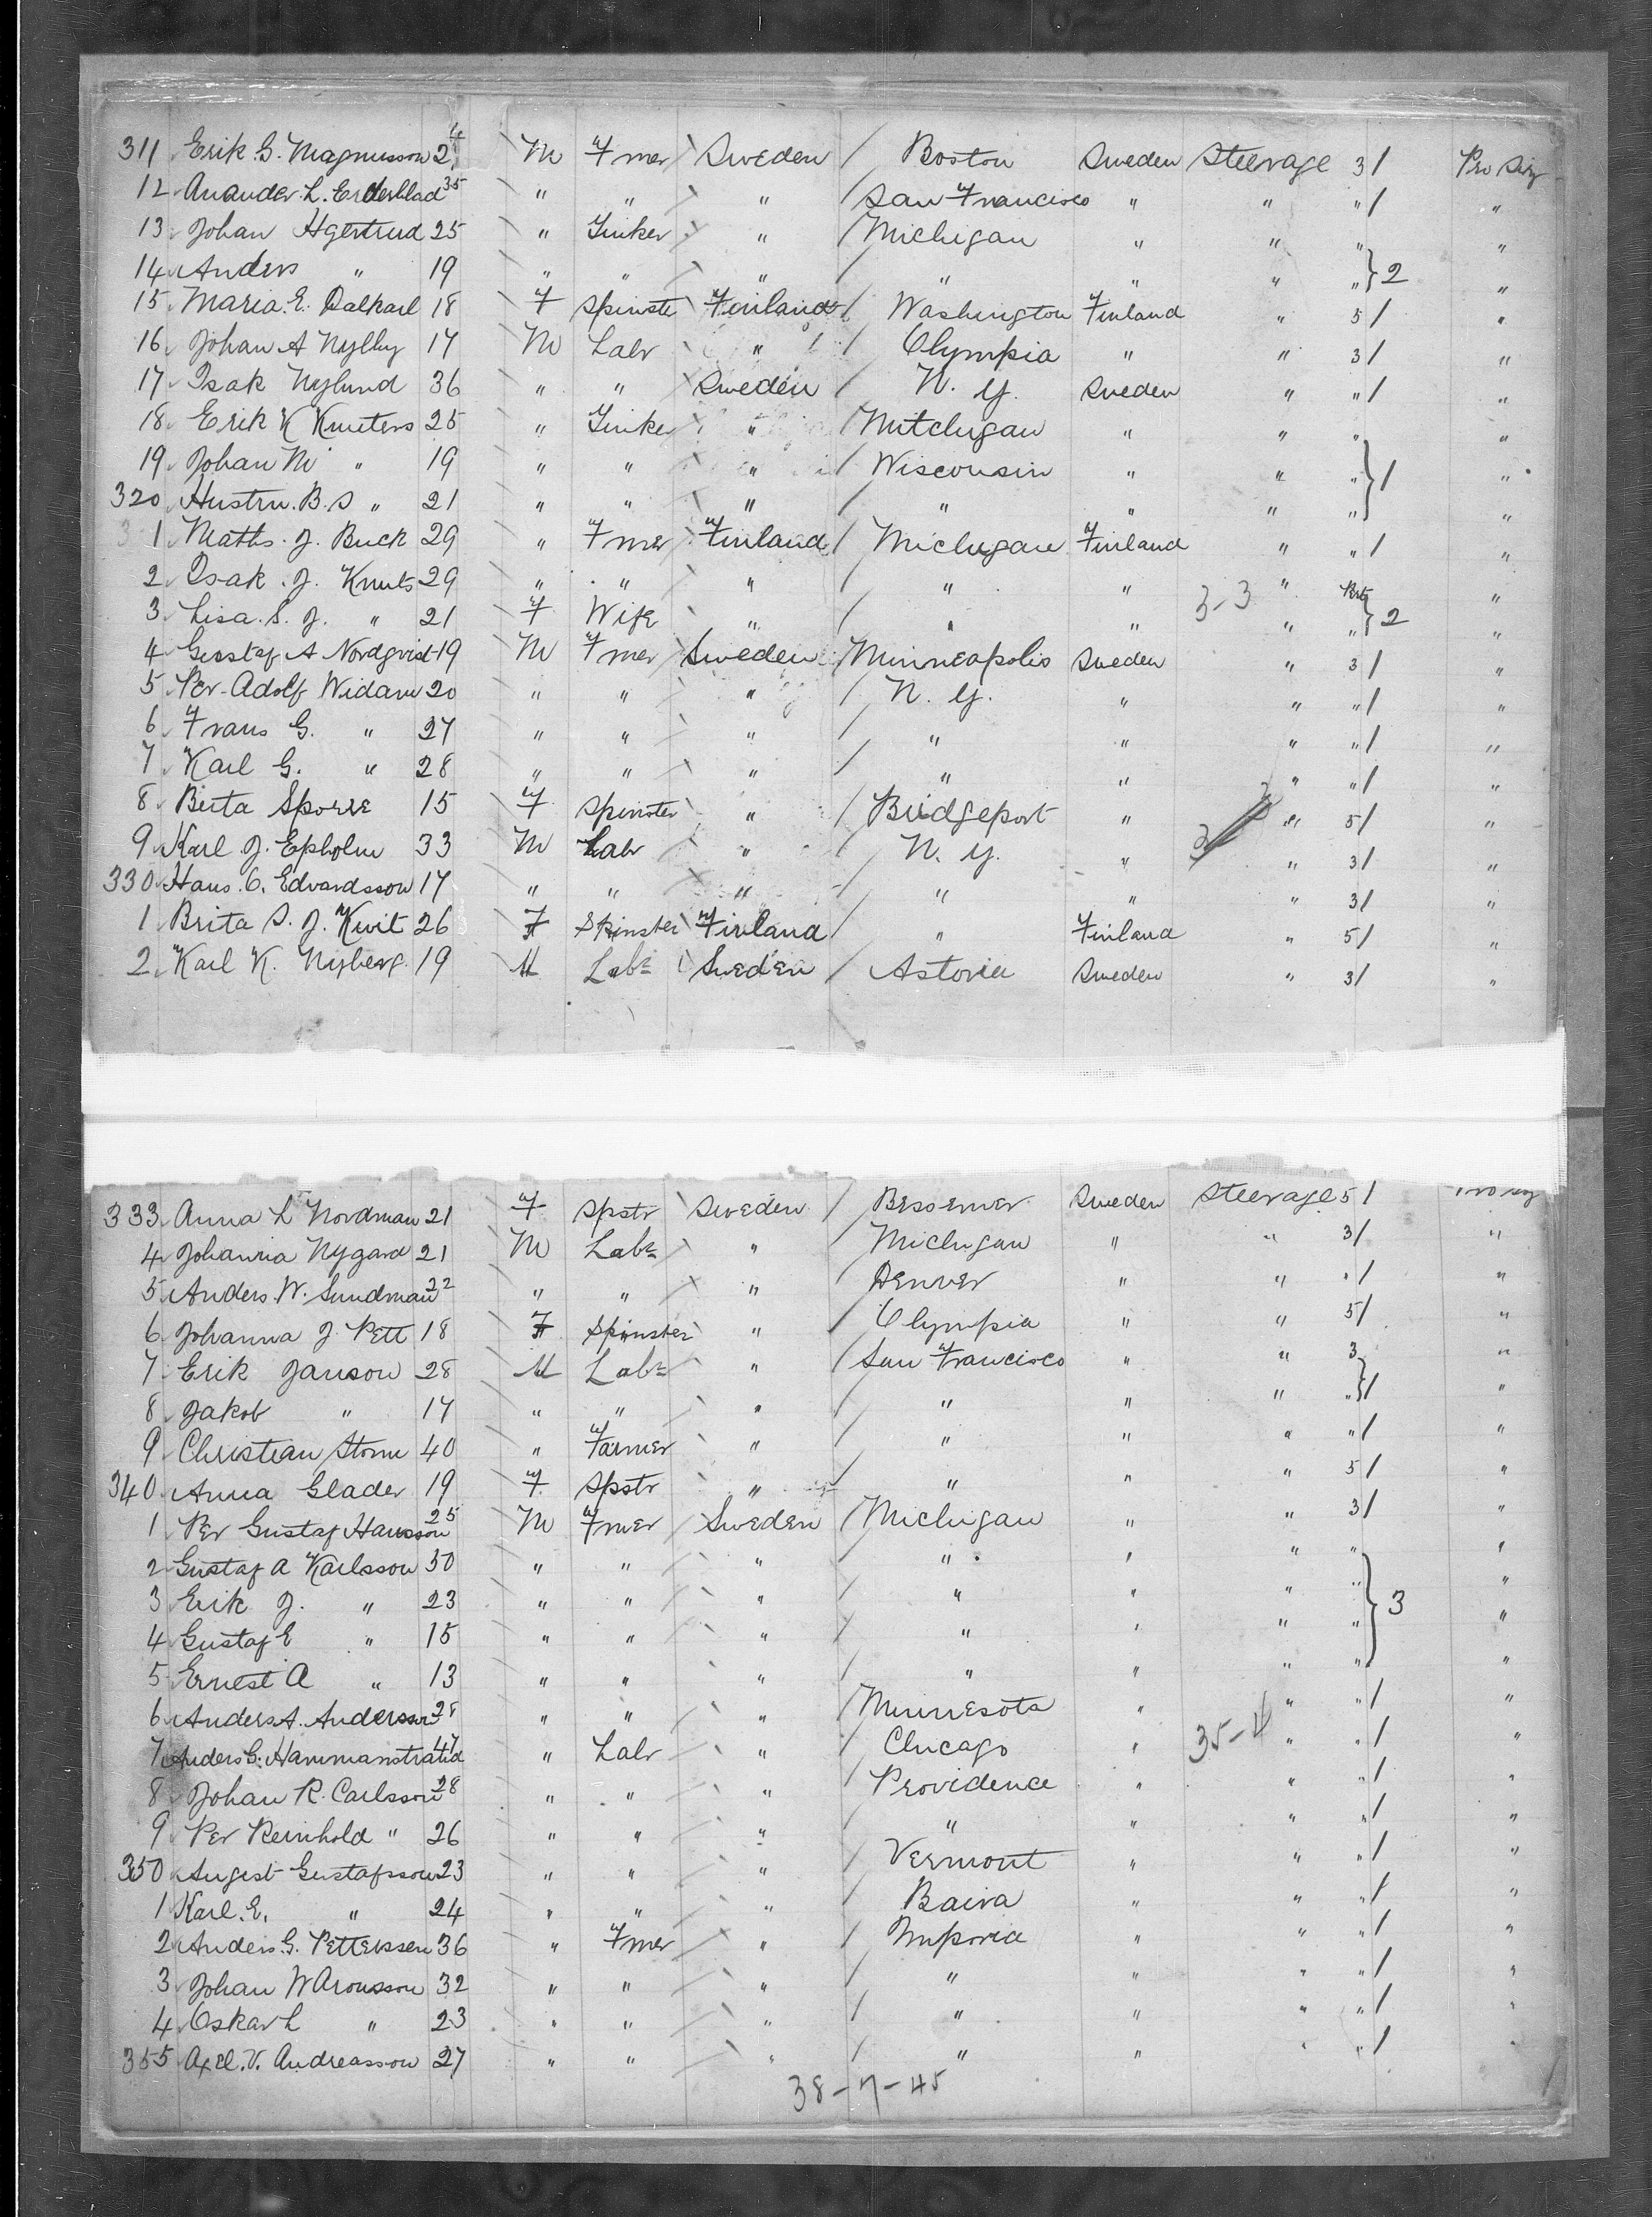 311 Erik G. Magnusson 24 M Fmer Sweden / Boston Sweden Steerage 3/ Pro Sirg
12 Anander L. Erderblad 35 " " " San Francisco " " "/ "
13 Johan Hgertrud 25 " Tinker " / Michigan " " " "
14 Anders " 19 " " " / " " " " } 2 "
15 Maria E. Dalkarl 18 F Spinste Finland / Washington Finland " 5/ "
16 Johan A Nylby 17 M Labr " / Olympia " " 3/ "
17 Isak Nylund 36 " " Sweden / N. Y. Sweden " "/ "
18 Erik K Knuters 25 " Tinke " / Mitchigan " " " "
19 Johan M " 19 " " " / Wisconsin " " " } 1 "
320 Hustru. B. S " 21 " " " / " " " " "
1 Matts. J. Buck 29 " Fmer Finland / Michigan Finland " "/ "
2 Isak. J. Knuts 29 " " " / " " 3-3 " "
3 Lisa. S. J. " 21 F Wife " / " " " " } 2 "
4 Gustaf A Nordqvist 19 M Fmer Sweden / Minneapolis Sweden " 3/ "
5 Per Adolf Widam 20 " " " / N. Y. " " "/ "
6 Frans G. " 27 " " " / " " " "/ "
7 Karl G. " 28 " " " / " " " "/ "
8 Birta Sporre 15 F Spinster " / Bridgeport " " 5/ "
9 Karl J. Epholm 33 M Labr " / N. Y. " " 3/ "
330 Hans. O. Edvardsson 17 " " " / " " " 3/ "
1 Brita S. J. Kvit 26 F Spinster Finland / " Finland " 5/ "
2 Karl K. Nyberg 19 M Labr Sweden / Astoria Sweden " 3/ "
333 Anna L Nordman 21 F Spstr Sweden / Bessemer Sweden Steerage 5/
4 Johanna Nygard 21 M Labr " Michigan " " 3/ "
5 Anders W. Sundman 22 " " " Denver " " "/ "
6 Johanna J. Pett 18 F Spinster " / Olympia " " 5/ "
7 Erik Janson 28 M Labr " / San Francisco " " 3 "
8 Jakob " 17 " " " / " " " " } 1 "
9 Christian Storm 40 " Farmer " / " " " "/ "
340 Anna Glader 19 F Spstr " / " " " 5/ "
1 Per Gustaf Hansson 25 M Fmer Sweden / Michigan " " 3/ "
2 Gustaf A Karlsson 50 " " " / " " " " "
3 Erik J. " 23 " " " / " " " " } 3 "
4 Gustaf E " 15 " " " / " " " " "
5 Ernest A " 13 " " " / " " " " "
6 Anders A. Andersson 28 " " " / Minnesota " " "/ "
7 Anders G. Hammanstratid 47 " Labr " / Chicago " 35-4 " "/ "
8 Johan R. Carlsson 28 " " " / Providence " " "/ "
9 Per Reinhold " 26 " " " / " " " "/ "
350 August Gustafsson 23 " " " / Vermont " " "/ "
1 Karl. E. " 24 " " " / Baiva " " "/ "
2 Anders G. Petterssen 36 " Fmer " / Imporia " " "/ "
3 Johan W Aronsson 32 " " " / " " " "/ "
4 Oskar L " 23 " " " / " " " "/ "
355 Axel. V. Andreasson 27 " " " / " " " "/ "
38-7-45